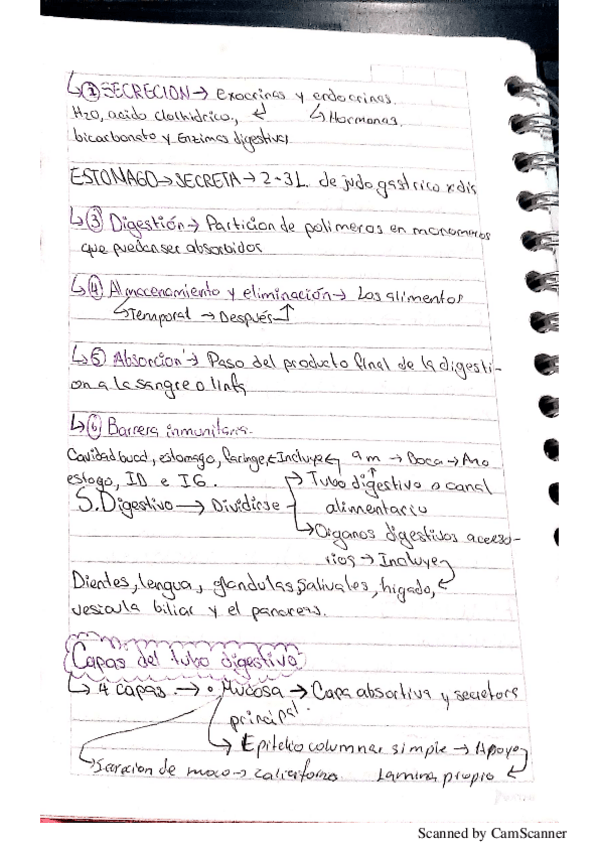 ↳② SECRECION → Exocrinas y endocrinas.
H2O, acido clolhidrico, ↲ ↳ Hormonas.
bicarbonato y Enzimas digestivas
ESTONAGO → SECRETA → 2-3L. de judo gastrico x dis
↳③ Digestión → Particion de polimeros en monomeros
que puedan ser absorbidos
↳④ Almacenamiento y eliminación → Los alimentos
↳ Temporal → Después ↑
↳⑤ Absorcion → Paso del producto final de la digesti-
on a la sangre o linfa
↳⑥ Barrera inmunitaria.
Cavidad bucal, estomago, faringe, ← Incluye 9 m → Boca → Ano
esfogo, ID e IG. → Tubo digestivo o canal
S. Digestivo → Dividirse alimentario
↳ Organos digestivos acceso-
rios → Incluye
Dientes, lengua, glandulas salivales, higado,
vesicula biliar y el pancreas.
Capas del tubo digestivo
↳ 4 capas → • Mucosa → Capa absortiva y secretora
principal.
↳ Epitelio columnar simple → Apoyo
↳ Secrecion de moco → caliciforme. Lamina propio
Scanned by CamScanner